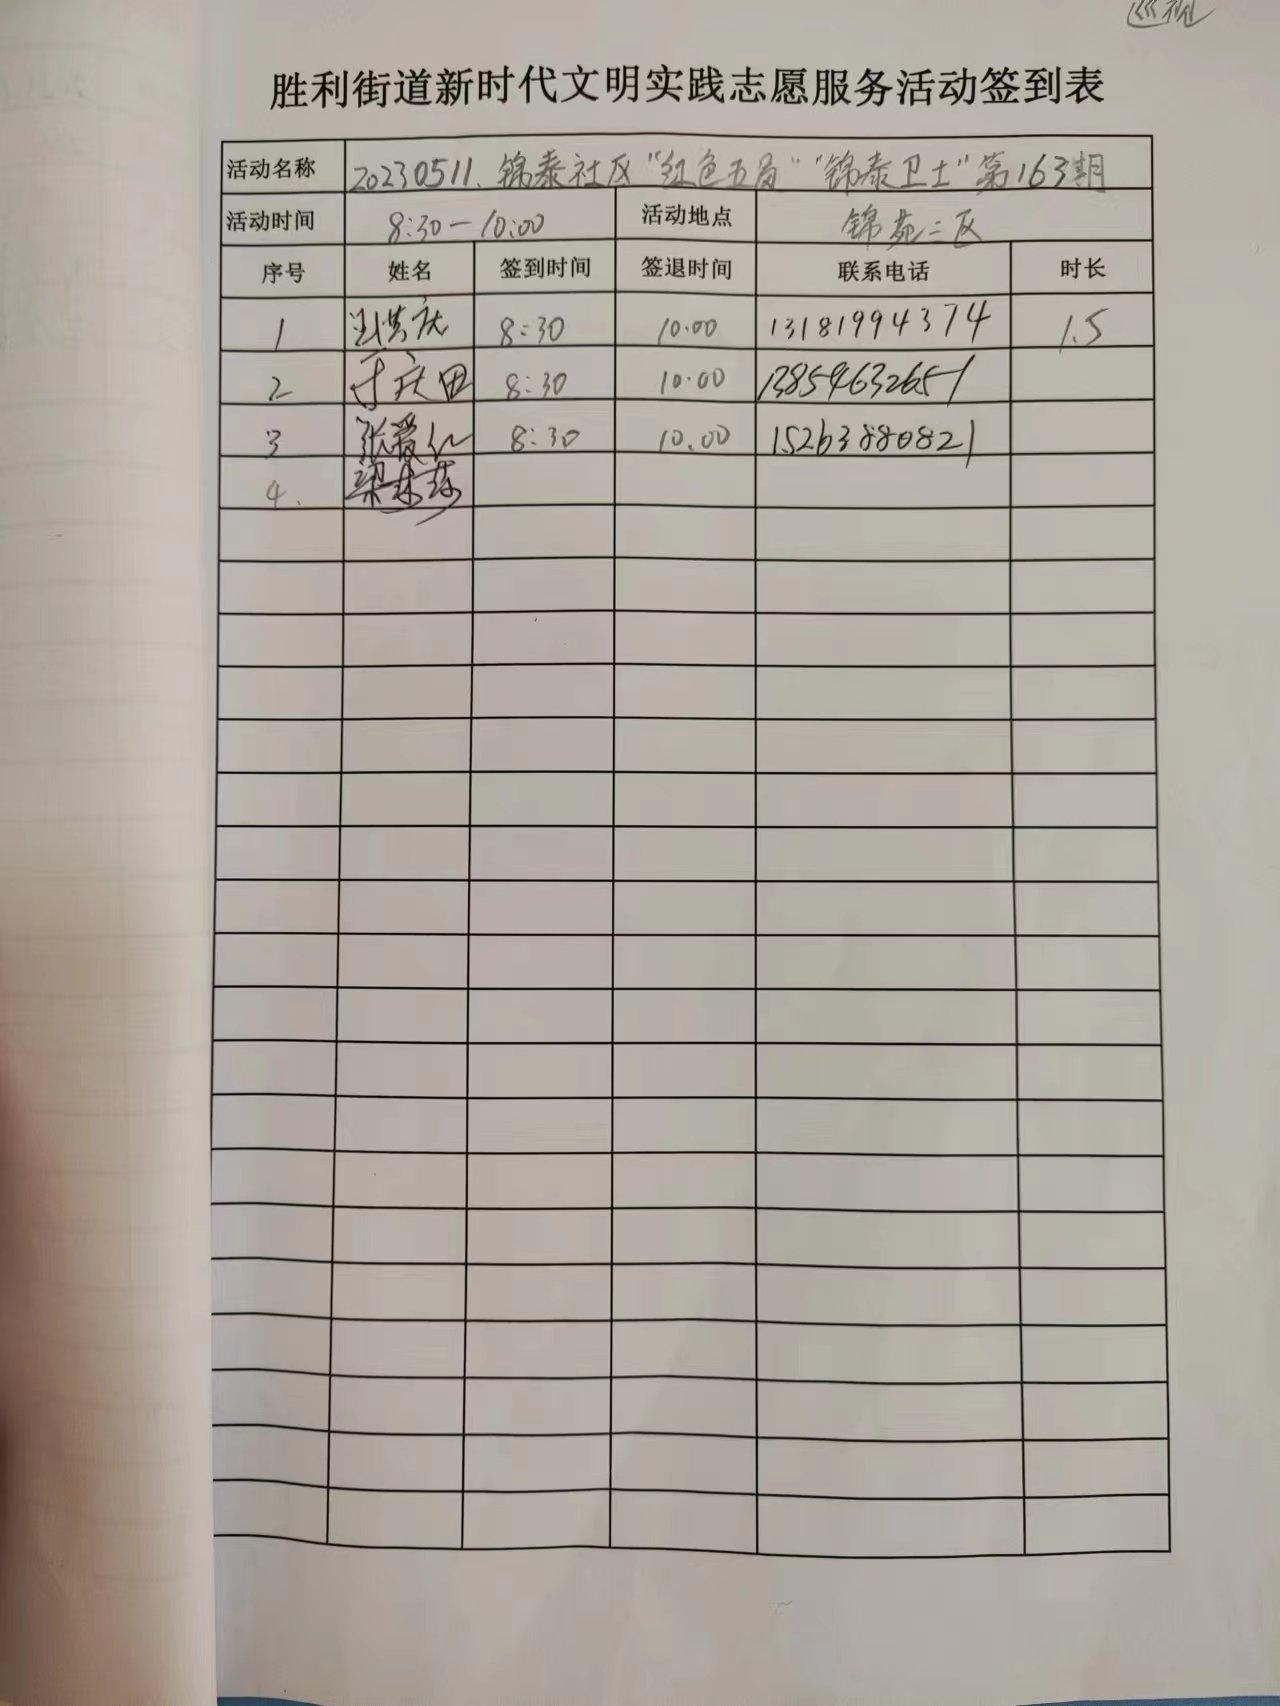 巡视
胜利街道新时代文明实践志愿服务活动签到表
活动名称 20230511、锦泰社区“红色五局”“锦泰卫士”第163期
活动时间 8:30—10:00 活动地点 锦苑二区
序号 姓名 签到时间 签退时间 联系电话 时长
1 8:30 10:00 13181994374 1.5
2 于庆田 8:30 10:00 13854632651
3 张爱仁 8:30 10.00 15263880821
4.